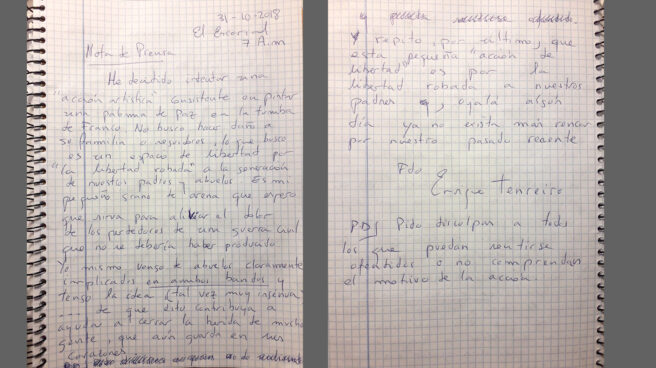 31-10-2018
El Escorial
7 A.m
Nota de Prensa
He decidido intentar una
"acción artística" consistente en pintar
una paloma de paz en la tumba
de Franco. No busco hacer daño a
su frammilia o seguidores, lo que busco
es un espacio de libertad por
"la libertad robada" a la generación
de nuestros padres y abuelos. Es mi
pequeño grano de arena que espero
que sirva para aliviar el dolor
de los perdedores de una guerra civil
que no se debería haber producido
Yo mismo vengo de abuelos claramente
implicados en ambos bandos y
tengo la idea (tal vez muy ingenua)
... de que esto contribuya a
ayudar a cerrar la herida de mucha
gente, que aún guarda en sus
corazones
Y repito, por último, que
esta pequeña "acción de
libertad" es por la
libertad robada a nuestros
padres, ojalá algún
día ya no exista más rencor
por nuestro pasado reciente
Fdo
Enrique Tenreiro
PD/ Pido disculpas a todos
los que puedan sentirse
ofendidos o no comprendan
el motivo de la acción